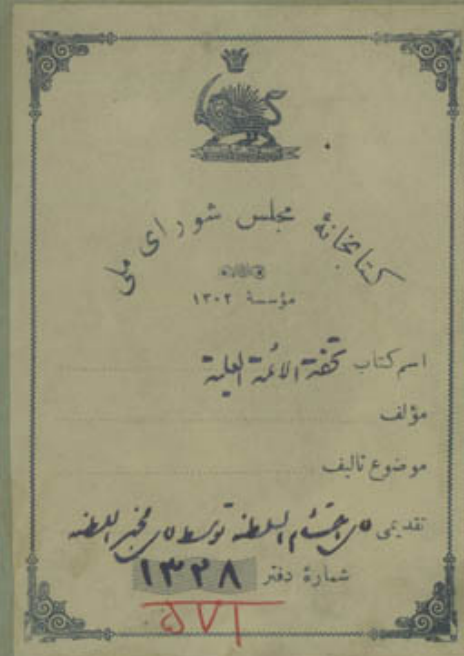 کتابخانهٔ مجلس شورای ملی
مؤسسهٔ ۱۳۰۲
اسم کتاب تحفة الائمة العلیة
مؤلف
موضوع تألیف
تقدیمی احتشام السلطنه توسط مخبر السلطنه
شمارهٔ دفتر ۱۳۳۸